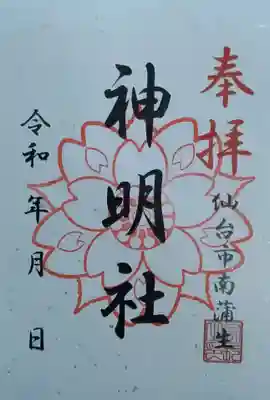 奉拝
仙台市南蒲生
神明社
令和年月日